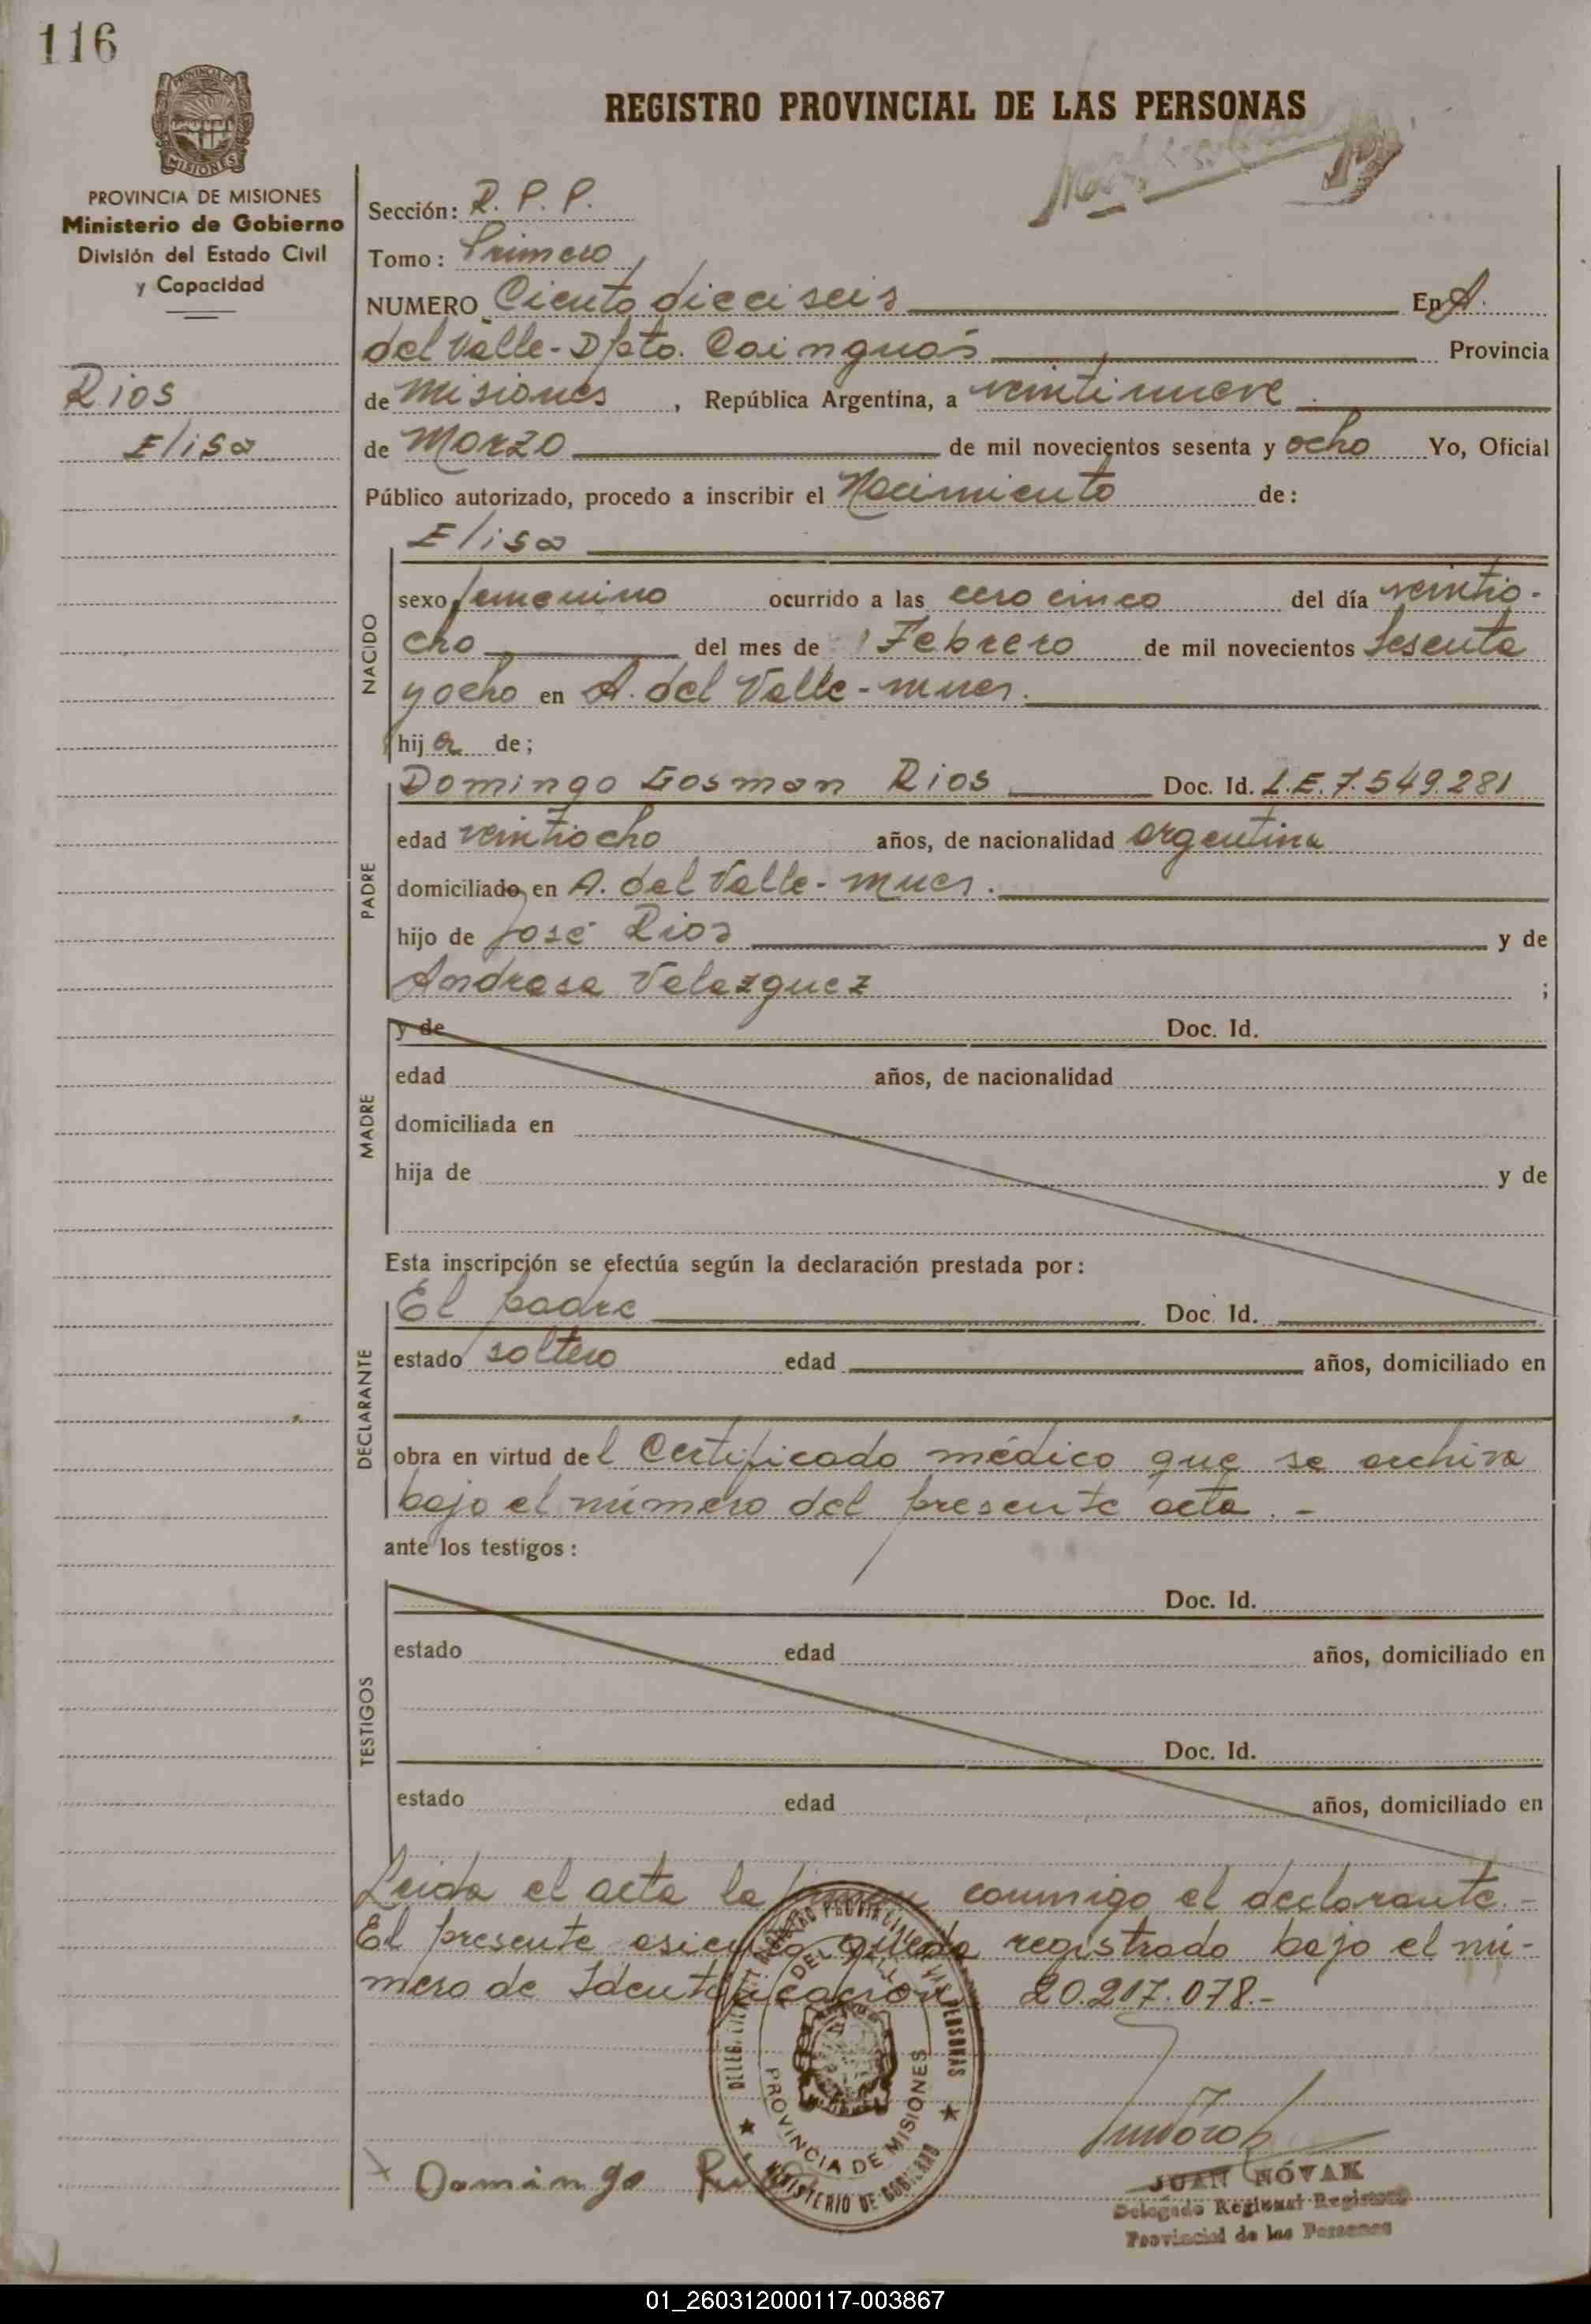 116
PROVINCIA DE MISIONES
PROVINCIA DE MISIONES
Ministerio de Gobierno
División del Estado Civil
y Capacidad
Rios
Elisa
REGISTRO PROVINCIAL DE LAS PERSONAS
Sección: R. P. P.
Tomo: Primero
NUMERO Ciento dieciseis En A.
del Valle - Dpto. Cainguás Provincia
de Misiones, República Argentina, a veintinueve
de Marzo de mil novecientos sesenta y ocho Yo, Oficial
Público autorizado, procedo a inscribir el Nacimiento de:
NACIDO
Elisa
sexo femenino ocurrido a las cero cinco del día veintio-
cho del mes de Febrero de mil novecientos sesenta
y ocho en A. del Valle - mnes.
hija de;
PADRE
Domingo Gosman Rios Doc. Id. L.E. 7.549.281
edad veintiocho años, de nacionalidad argentina
domiciliado en A. del Valle - mnes.
hijo de José Rios y de
Andresa Velazquez ;
MADRE
y de Doc. Id.
edad años, de nacionalidad
domiciliada en
hija de y de
Esta inscripción se efectúa según la declaración prestada por:
DECLARANTE
El padre Doc. Id.
estado soltero edad años, domiciliado en
obra en virtud del Certificado médico que se archiva
bajo el número del presente acta. -
ante los testigos:
TESTIGOS
Doc. Id.
estado edad años, domiciliado en
Doc. Id.
estado edad años, domiciliado en
Leida el acta la firman conmigo el declarante. -
El presente asiento queda registrado bajo el nú-
mero de Identificación 20.217.078.-
REGISTRO PROVINCIAL DE LAS PERSONAS
A. DEL VALLE
PROVINCIA DE MISIONES
MINISTERIO DE GOBIERNO
Domingo
JUAN NOVAK
Delegado Regional Registro
Provincial de las Personas
01_260312000117-003867